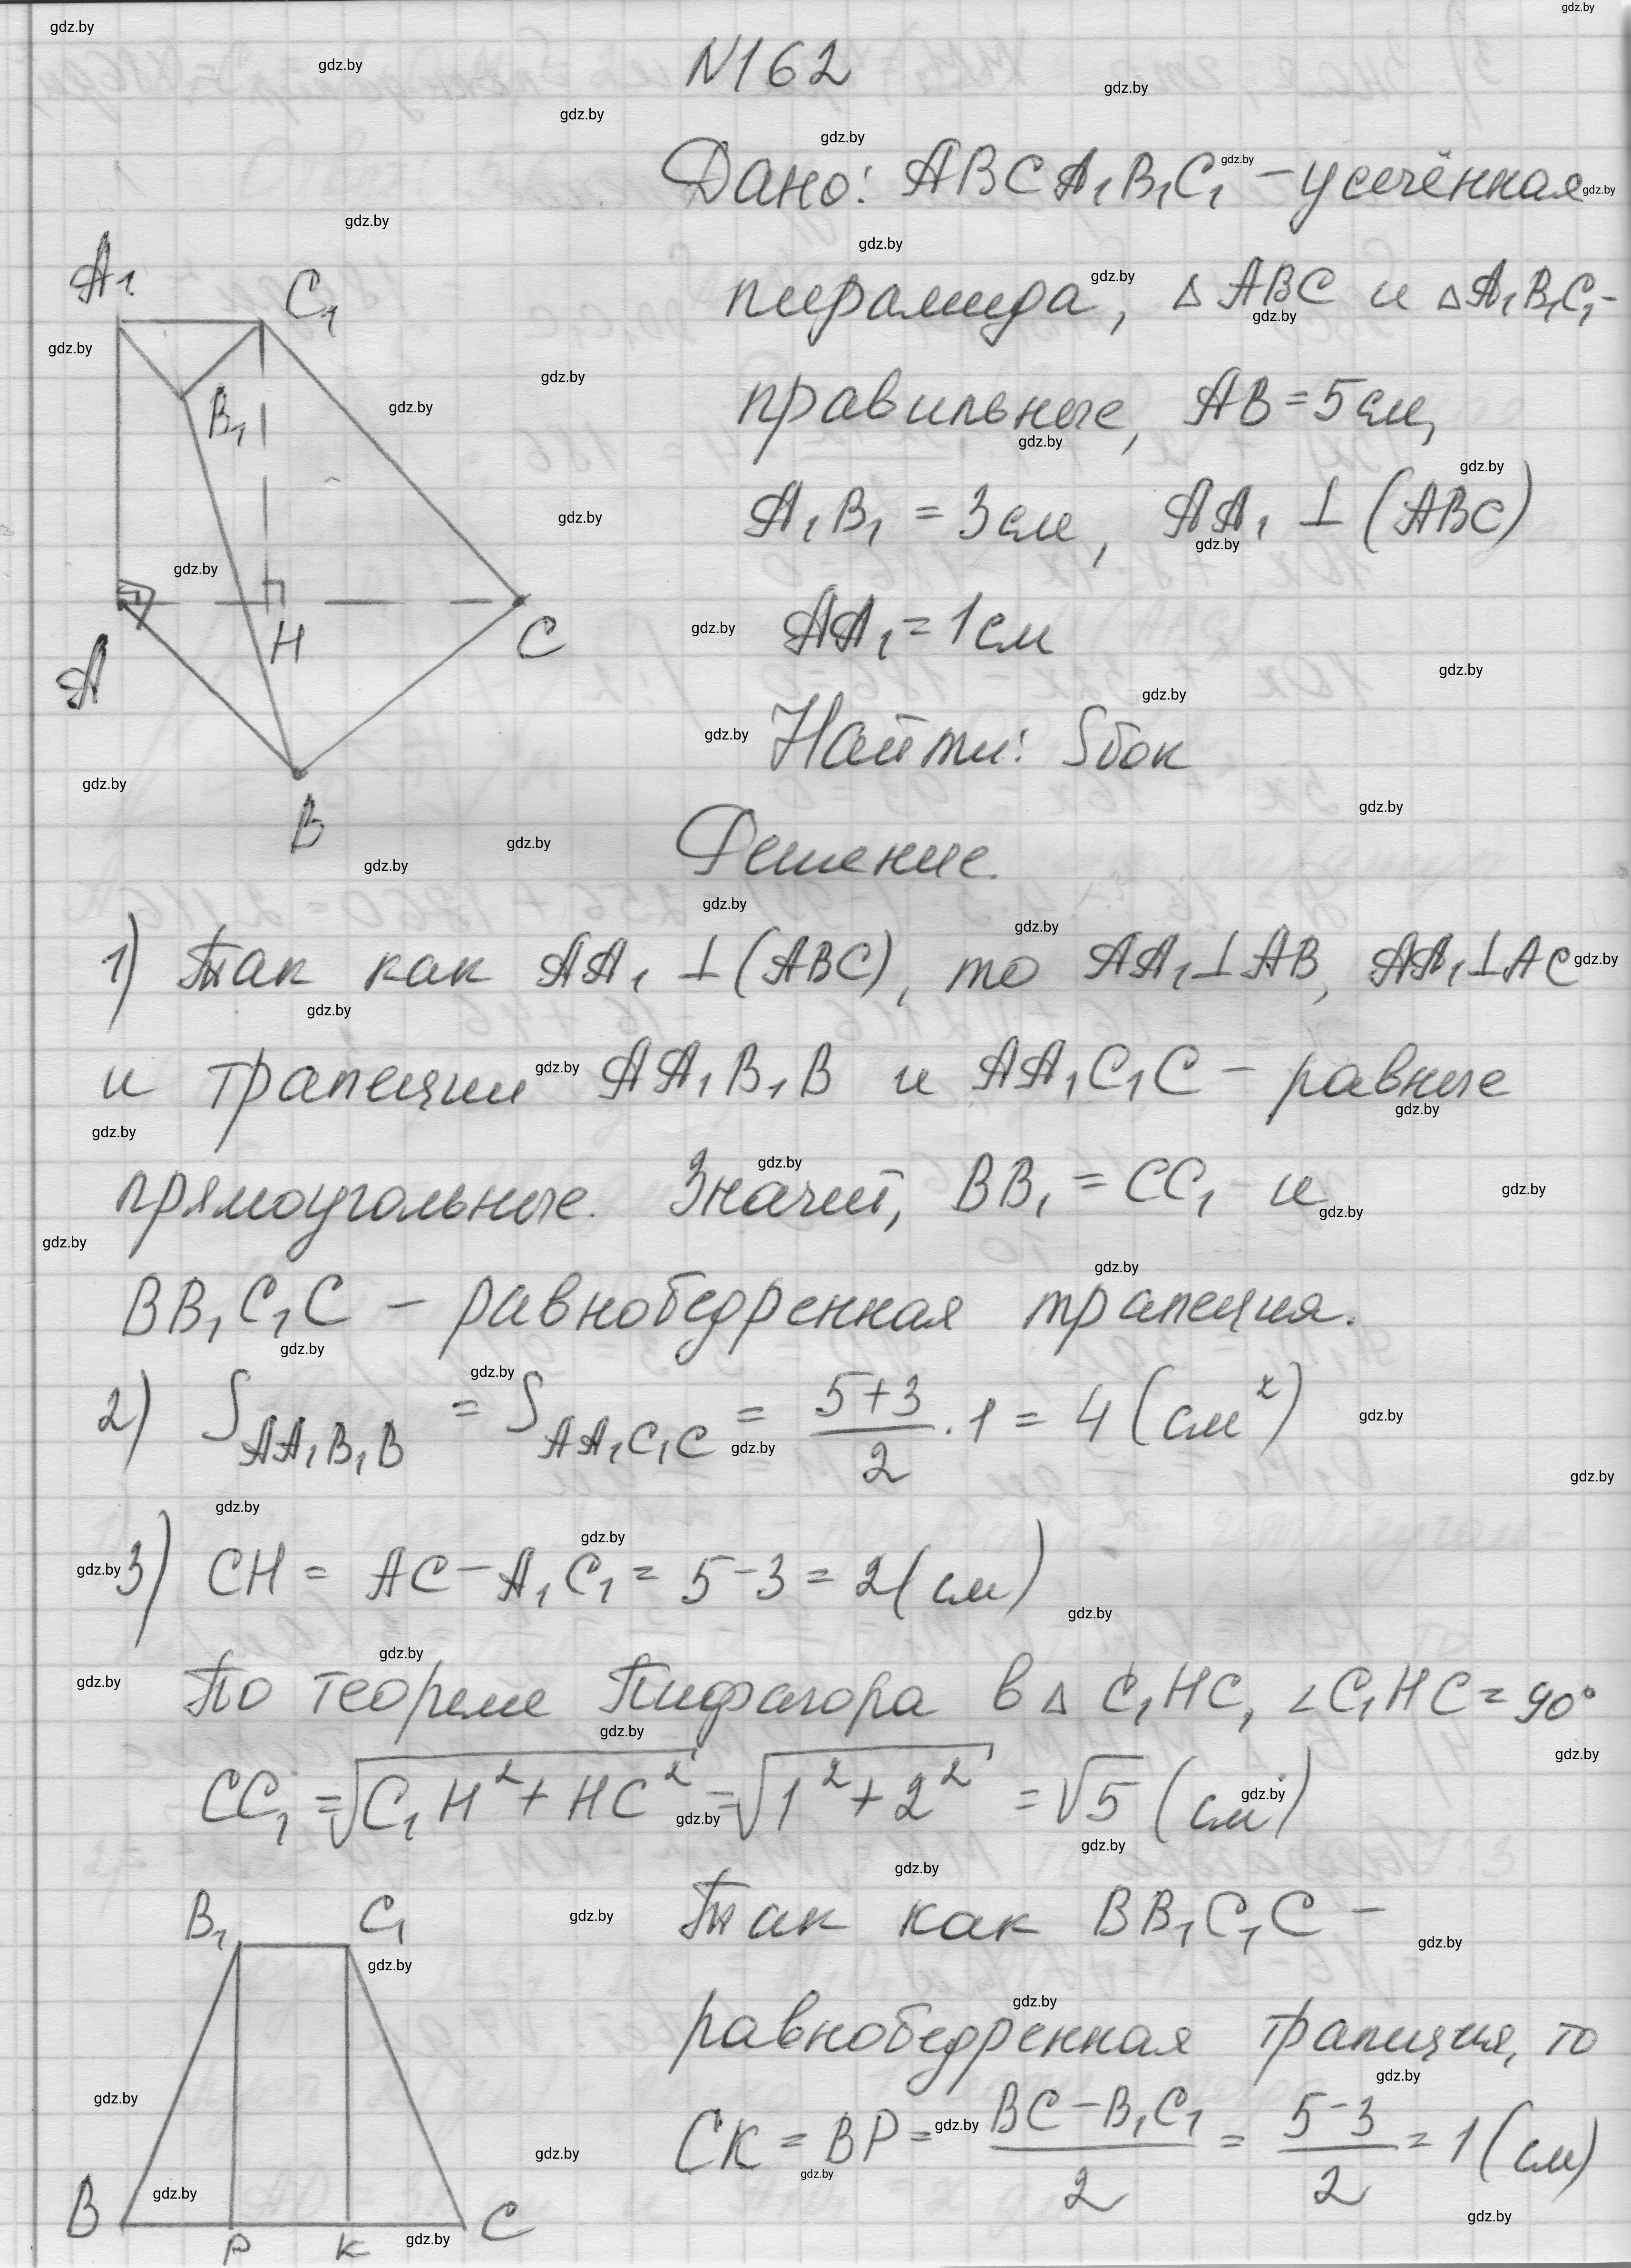 N162
Дано: ABCA₁B₁C₁ – усечённая
пирамида, △ABC и △A₁B₁C₁ -
правильные, AB = 5 см,
A₁B₁ = 3 см, AA₁ ⊥ (ABC)
AA₁ = 1 см
Найти: Sбок
A₁
C₁
B₁
H
C
A
B
Решение.
1) Так как AA₁ ⊥ (ABC), то AA₁ ⊥ AB, AA₁ ⊥ AC
и трапеции AA₁B₁B и AA₁C₁C – равные
прямоугольные. Значит, BB₁ = CC₁ и
BB₁C₁C – равнобедренная трапеция.
2) S_{AA₁B₁B} = S_{AA₁C₁C} = (5+3)/2 · 1 = 4 (см²)
3) CH = AC – A₁C₁ = 5 – 3 = 2 (см)
По теореме Пифагора в △ C₁HC, ∠C₁HC = 90°
CC₁ = √(C₁H² + HC²) = √(1² + 2²) = √5 (см)
B₁ C₁
B P K C
Так как BB₁C₁C –
равнобедренная трапеция, то
CK = BP = (BC – B₁C₁)/2 = (5 – 3)/2 = 1 (см)
gdz.by